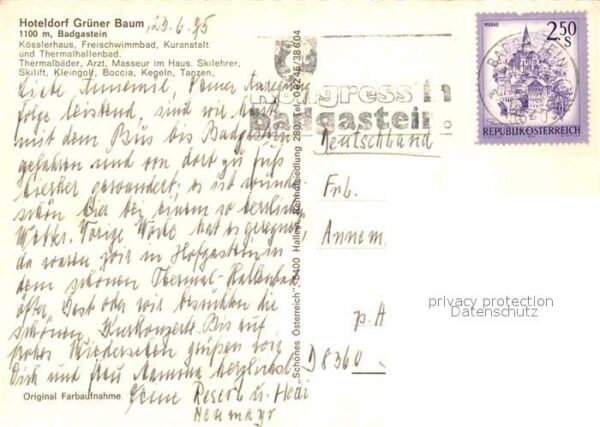 Hoteldorf Grüner Baum, 23.6.75
1100 m, Badgastein
Kösslerhaus, Freischwimmbad, Kuranstalt
und Thermalhallenbad.
Thermalbäder, Arzt, Masseur im Haus. Skilehrer,
Skilift, Kleingolf, Boccia, Kegeln, Tanzen.
Liebe Annemie, Deiner
folge leistend, sind wir
mit dem Bus bis Badgastein
gefahren und von dort zu Fuß
hierher gewandert; es ist wunder
schön hier bei einem so herrlichen
Wetter. Vorige Woche hat es geregnet,
da waren wir in Hofgastein in
dem schönen Thermal-Hallenbad
öfter, Dort oder wir besuchten die
schönen Kurkonzerte. Bis auf
frohes Wiedersehen grüßen wir
Dich und Frau Mamma herzlichst
Deine Reserl u. Hedi
Neumayr
Original Farbaufnahme
"Schönes Österreich", 5400 Hallein, Rehhofsiedlung 280, Tel. 0 62 45/38 6 04
Kongress in
Badgastein
MURAU
2.50
S
REPUBLIK ÖSTERREICH
BADGASTEIN
Deutschland
Frl.
Annem
p. A
D 8360
privacy protection
Datenschutz